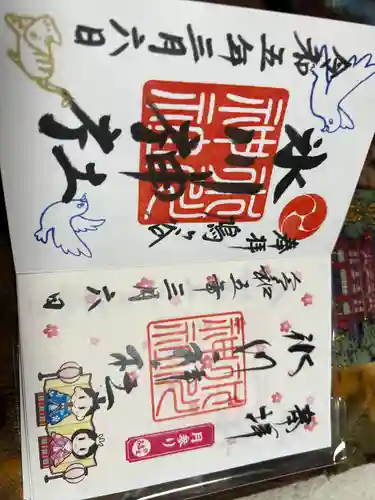 奉拝
鳩ヶ谷
氷川神社
令和五年三月六日
奉拝
氷川神社
令和五年三月六日
月参り